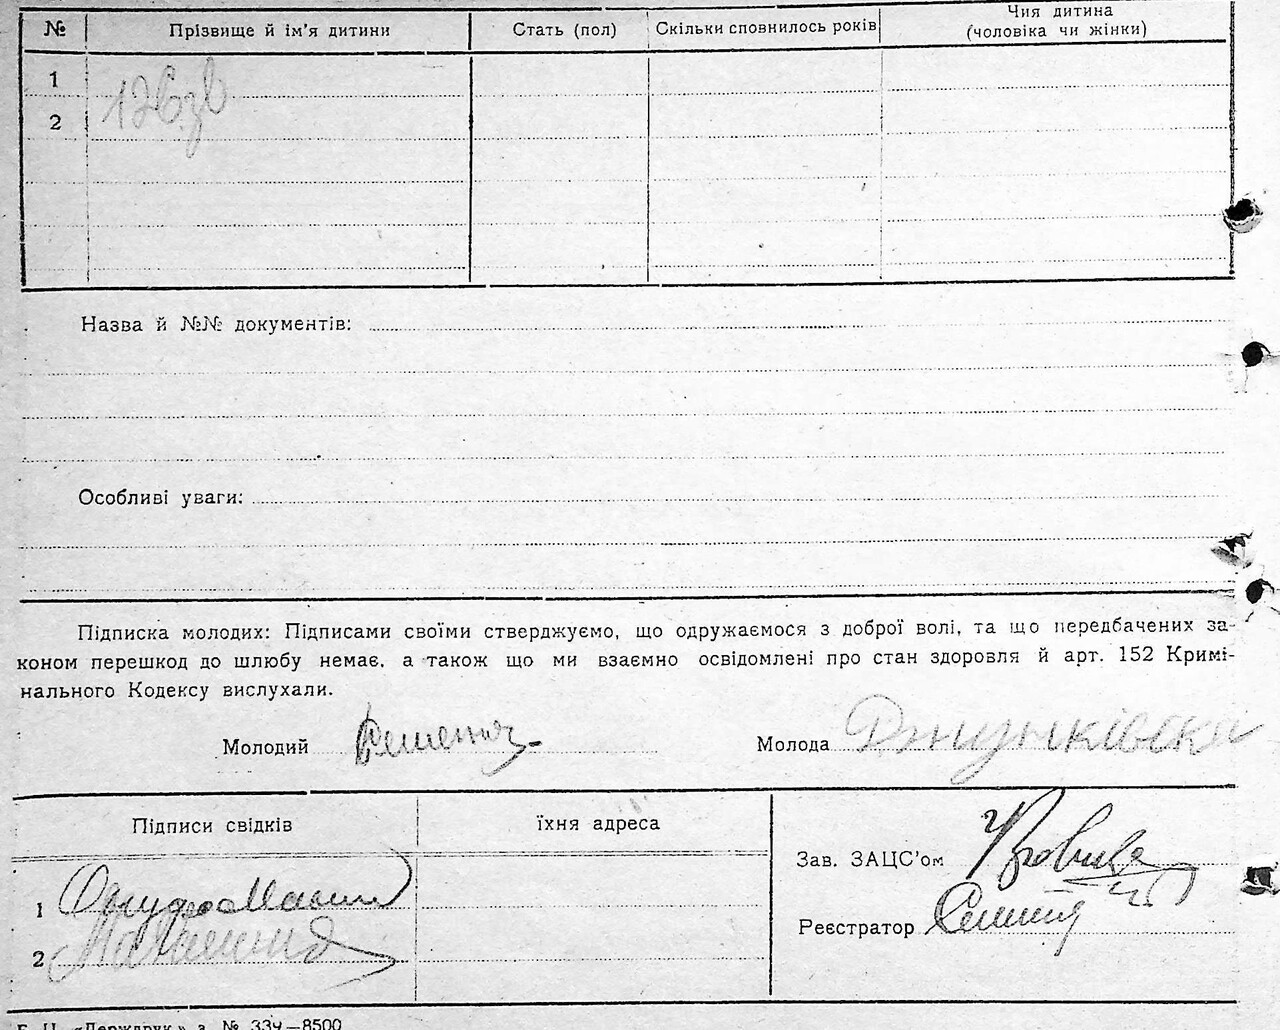 № Прізвище й ім'я дитини Стать (пол) Скільки сповнилось років Чия дитина (чоловіка чи жінки)
1
2
Назва й №№ документів:
Особливі уваги:
Підписка молодих: Підписами своїми стверджуємо, що одружаємося з доброї волі, та що передбачених за-
коном перешкод до шлюбу немає, а також що ми взаємно освідомлені про стан здоровля й арт. 152 Кримі-
нального Кодексу вислухали.
Молодий Молода
Підписи свідків їхня адреса
Зав. ЗАЦС'ом
1
Реєстратор
2
«Держдрук» з. № 334—8500